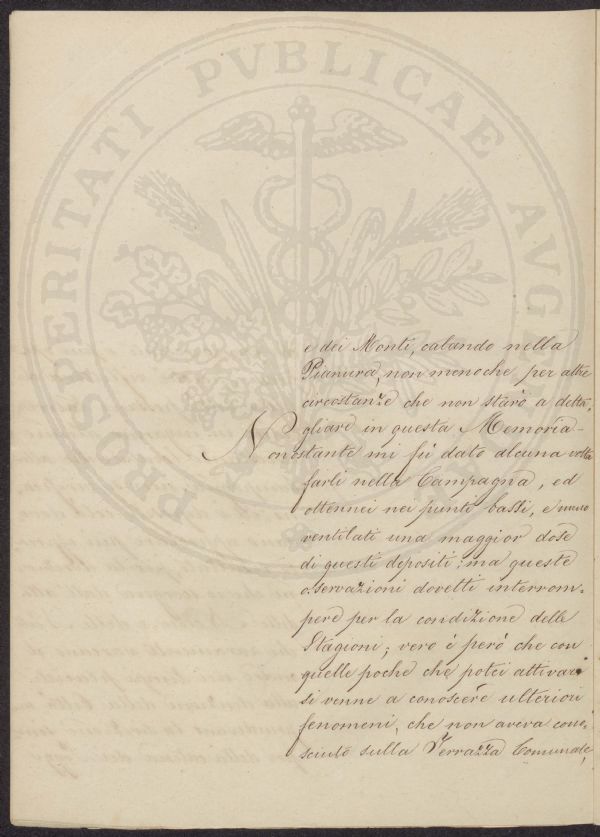 PROSPERITATI PVBLICAE AVG
e dei Monti, calando nella
Pianura, non meno che per altre
circostanze che non starò a detta-
gliare in questa Memoria-
Nonostante mi fù dato alcuna volta
farli nella Campagna, ed
ottennei nei punti bassi, e meno
ventilati una maggior dose
di questi depositi; ma queste
osservazioni dovetti interrom-
pere per la condizione delle
Stagioni; vero è però che con
quelle poche che potei attivare
si venne a conoscere ulteriori
fenomeni, che non aveva cono-
sciuto sulla Terrazza Comunale,